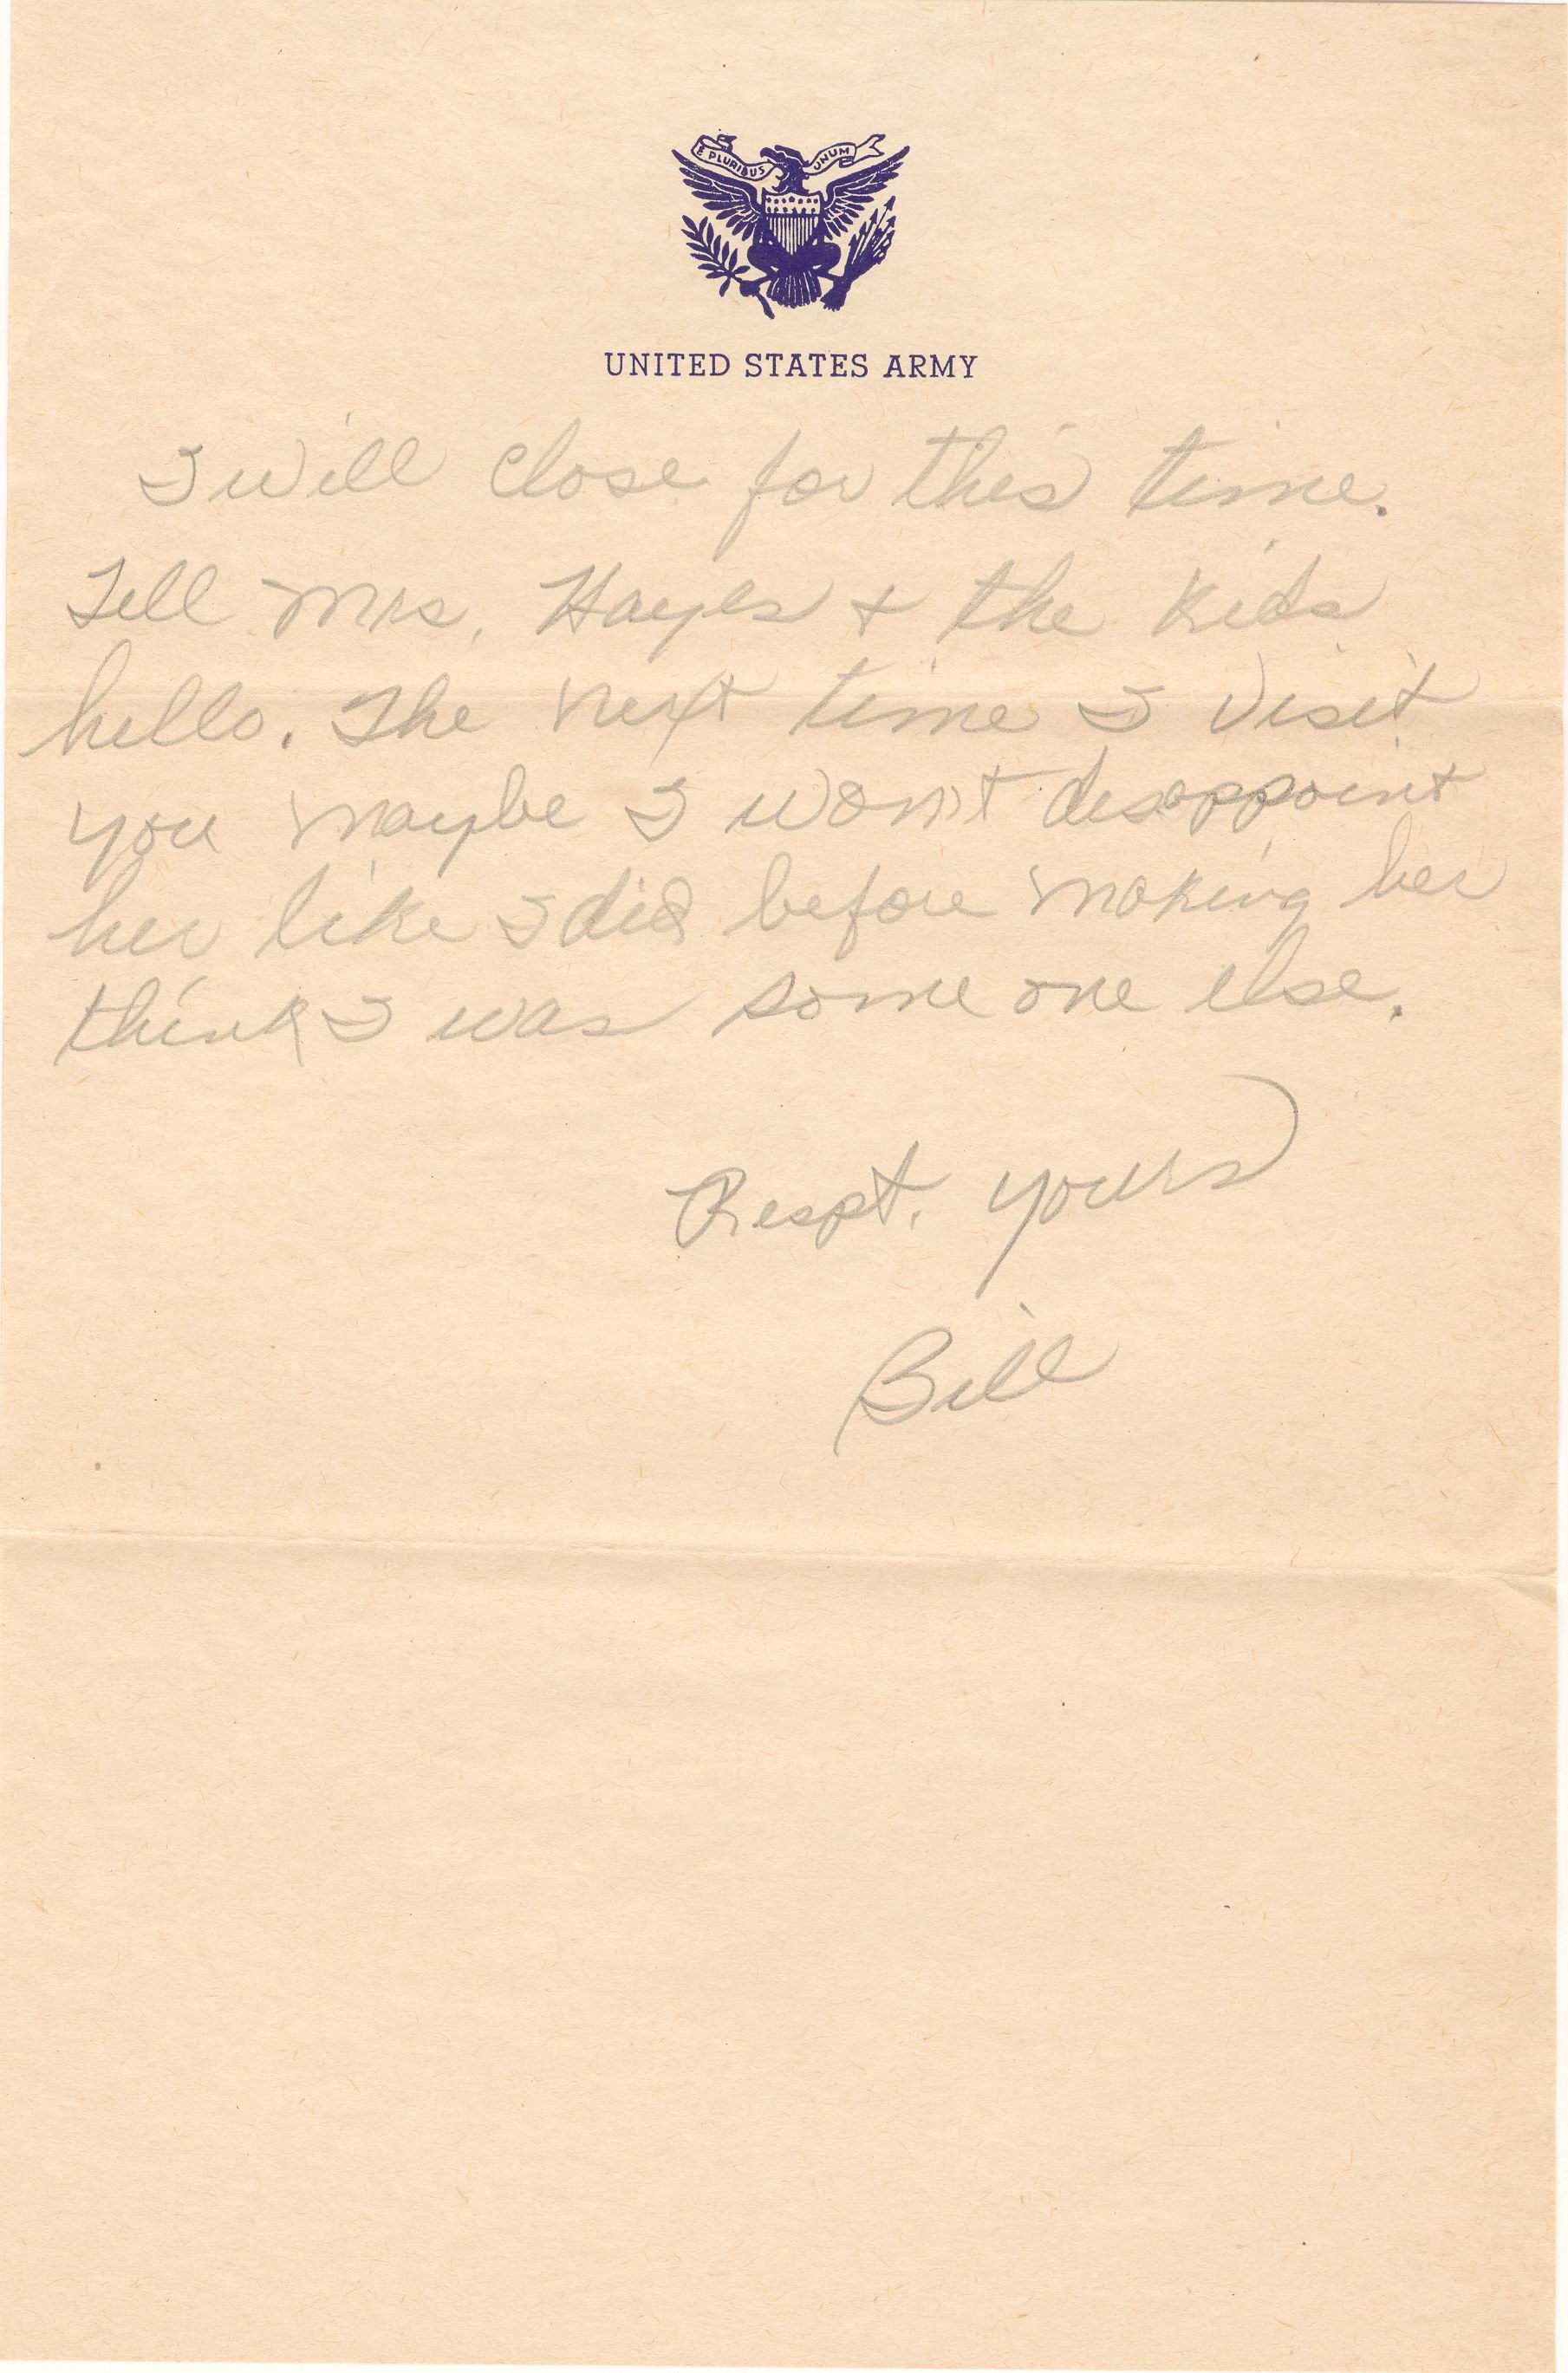 E PLURIBUS UNUM
UNITED STATES ARMY
I will close for this time.
Tell Mrs. Hayes + the kids
hello. The next time I visit
you maybe I won't disappoint
her like I did before making her
think I was some one else.
Respt. yours
Bill